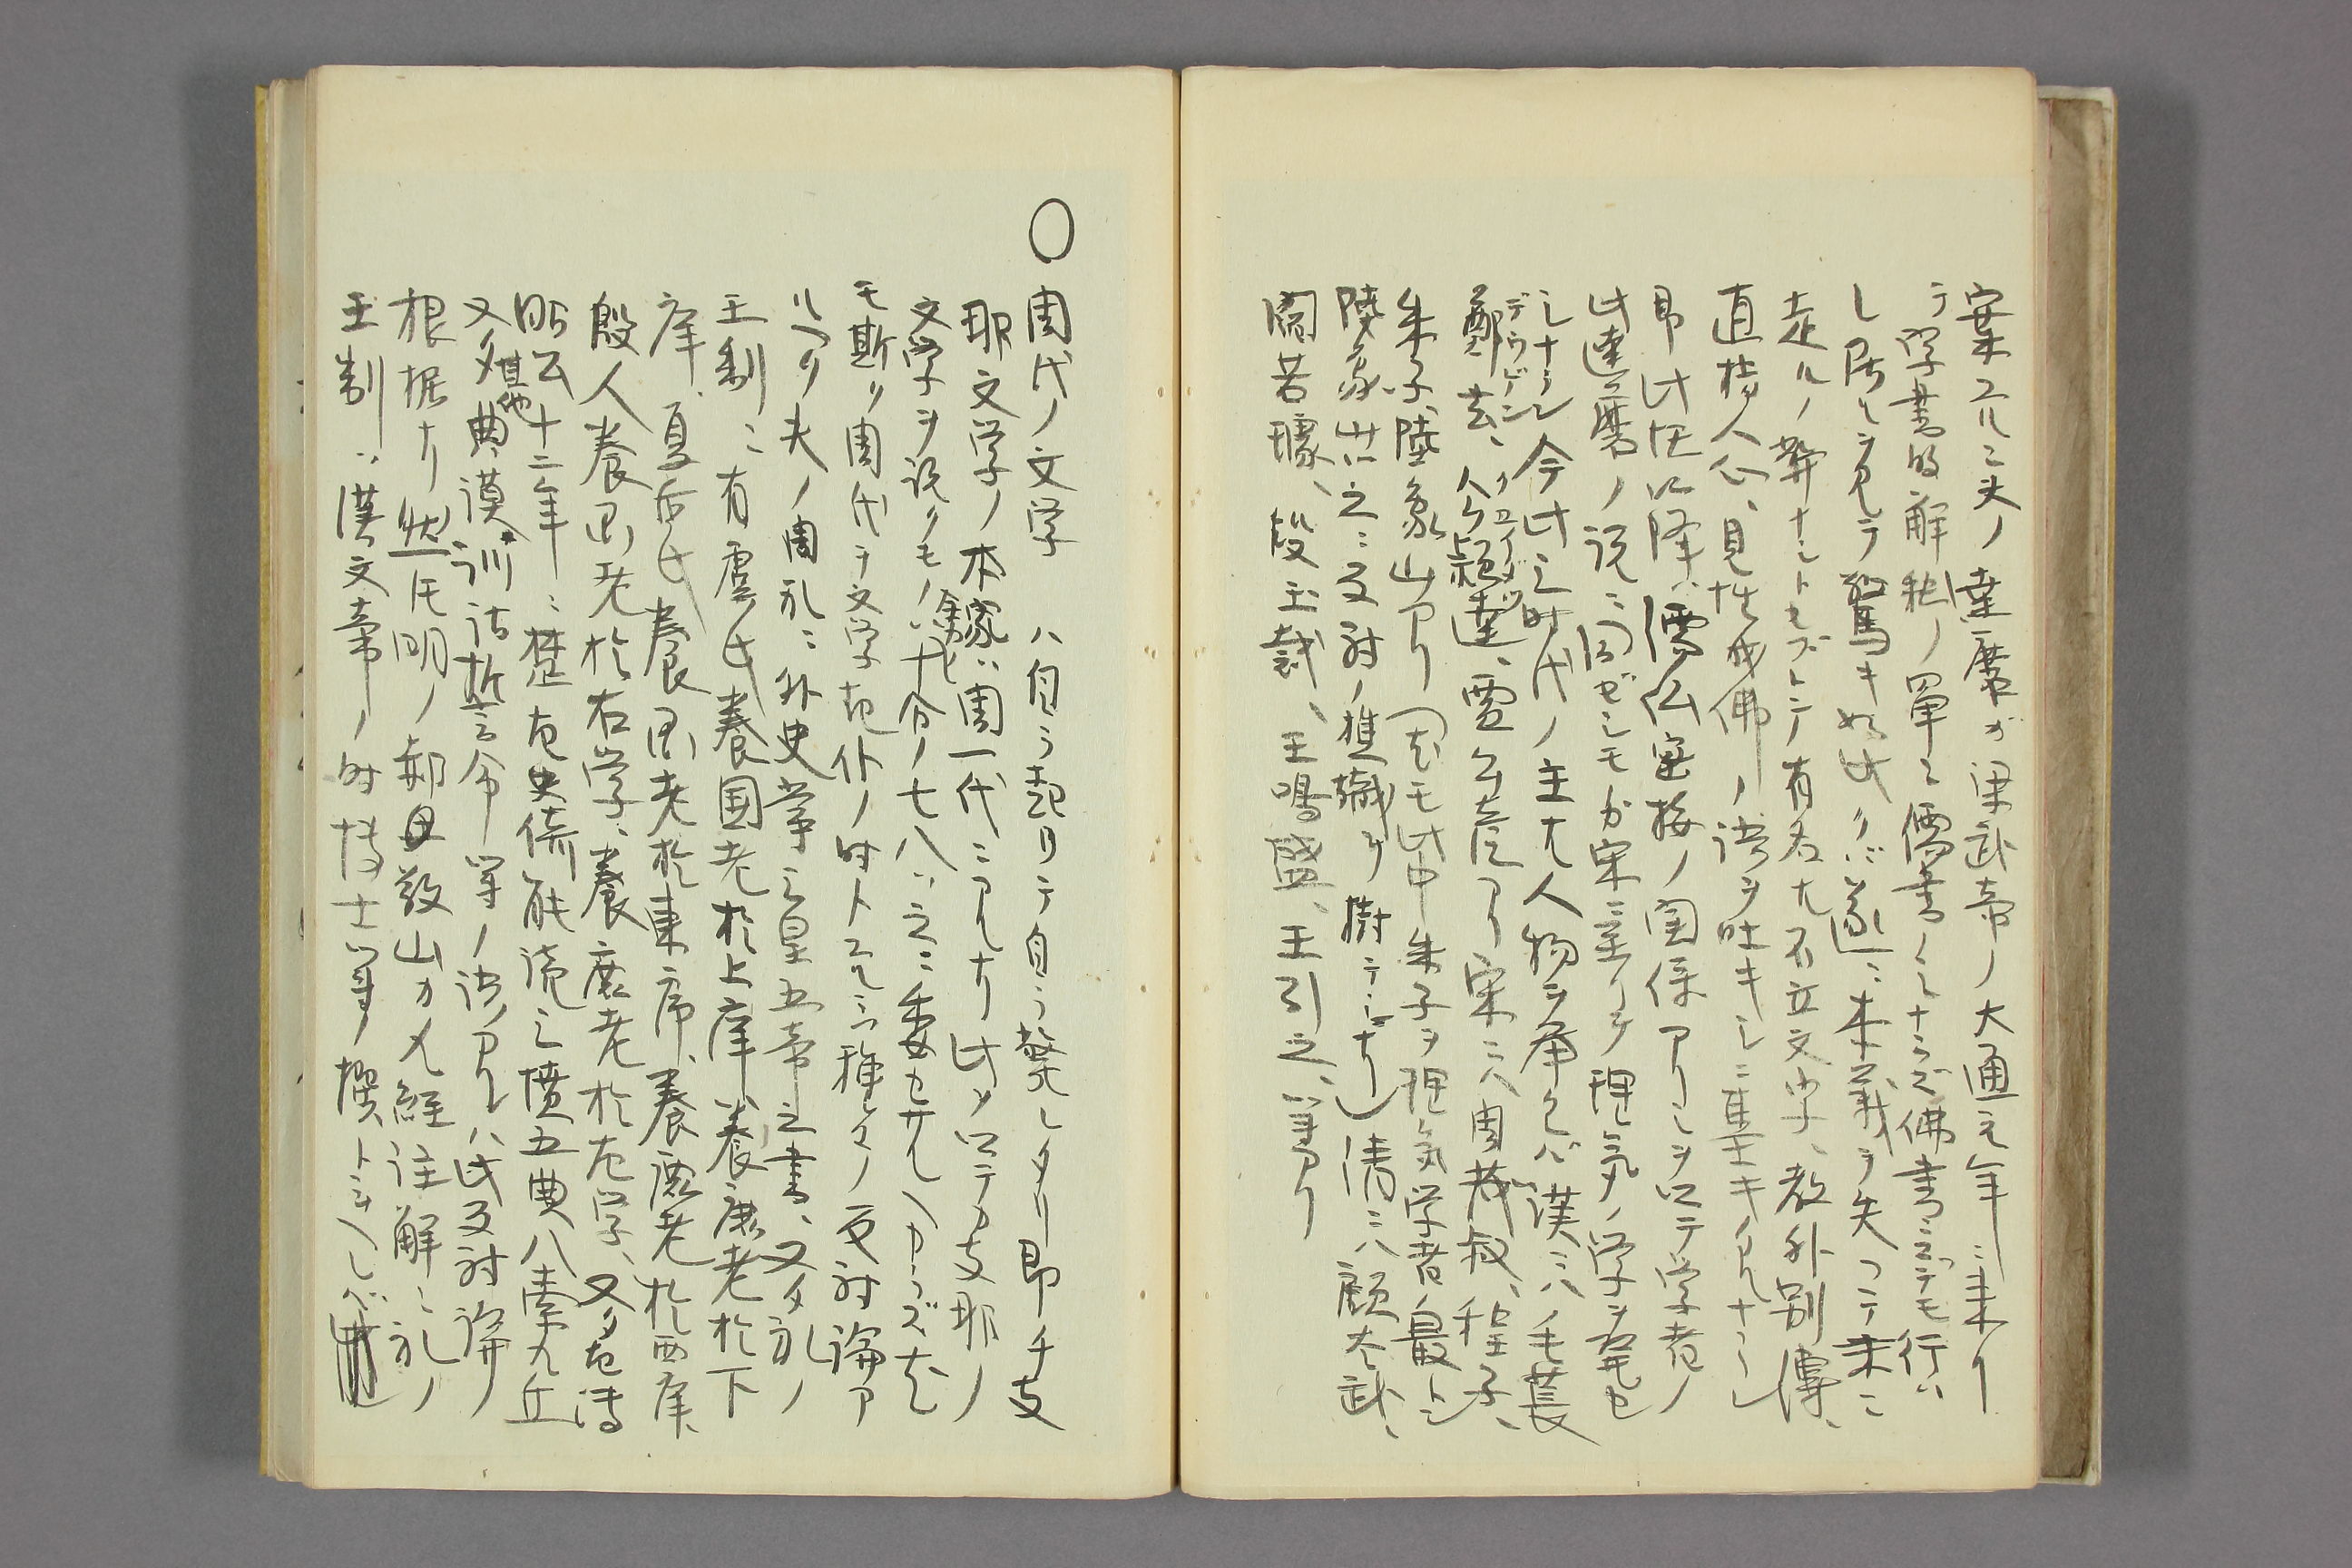 案ズルニ夫ノ達磨ガ梁武帝ノ大通元年ニ来リ
テ字書的解釈ノ単ニ儒書ノミナラズ佛書ニマデモ行ハ
レ居ルヲ見テ驚キ如此クバ遂ニ本義ヲ失フテ末ニ
走ルノ弊ナシトセズトテ有名ナ不立文字、教外別傳、
直指人心、見性成佛ノ語ヲ吐キシニ基キタルナラン
即此往以降、儒仏密接ノ関係アリシヲ以テ学者ノ
此達磨ノ説ニ同ゼシモガ宋ニ至リテ理気ノ学ヲ起セ
シナラン 今此三時代ノ主ナル人物ヲ挙グレバ漢ニハ毛萇
鄭玄、唐ニハ孔穎達、賈公彦アリ宋ニハ周茂叔、程子、
朱子、陸象山アリ(尤モ此中朱子ヲ理気学者ノ最トシ
陸象山ハ之ニ反対ノ旗幟ヲ樹テシナリ)清ニハ顧炎武、
閻若璩、段玉裁、王鳴盛、王引之、等アリ
〇周代ノ文学 ハ自ラ起リテ自ラ発シタリ即チ支
那文学ノ本家ハ周一代ニアルナリ此ヲ以テカ支那ノ
文学ヲ説クモノハ十分ノ七八ハ之ニ委セザルベカラズ尤
モ斯ク周代ヲ文学起作ノ時トスルニハ種々ノ反対論ア
ルベク夫ノ周礼ニ外史掌三皇五帝之書、又タ礼ノ
王制ニ有虞氏養国老於上庠養庶老於下
庠、夏后氏養国老於東序、養庶老於西序、
殷人養国老於右学、養庶老於左学、又タ左傳
昭公十二年ニ楚左史倚相能読三墳五典八索九丘
又タ其他典、謨、訓、誥、誓、命等ノ語アルハ此反対論ノ
根據ナリ然レ㪅明ノ郝敬山カ九経注解ニ礼ノ
王制ハ漢文帝ノ時博士等ノ撰トシ